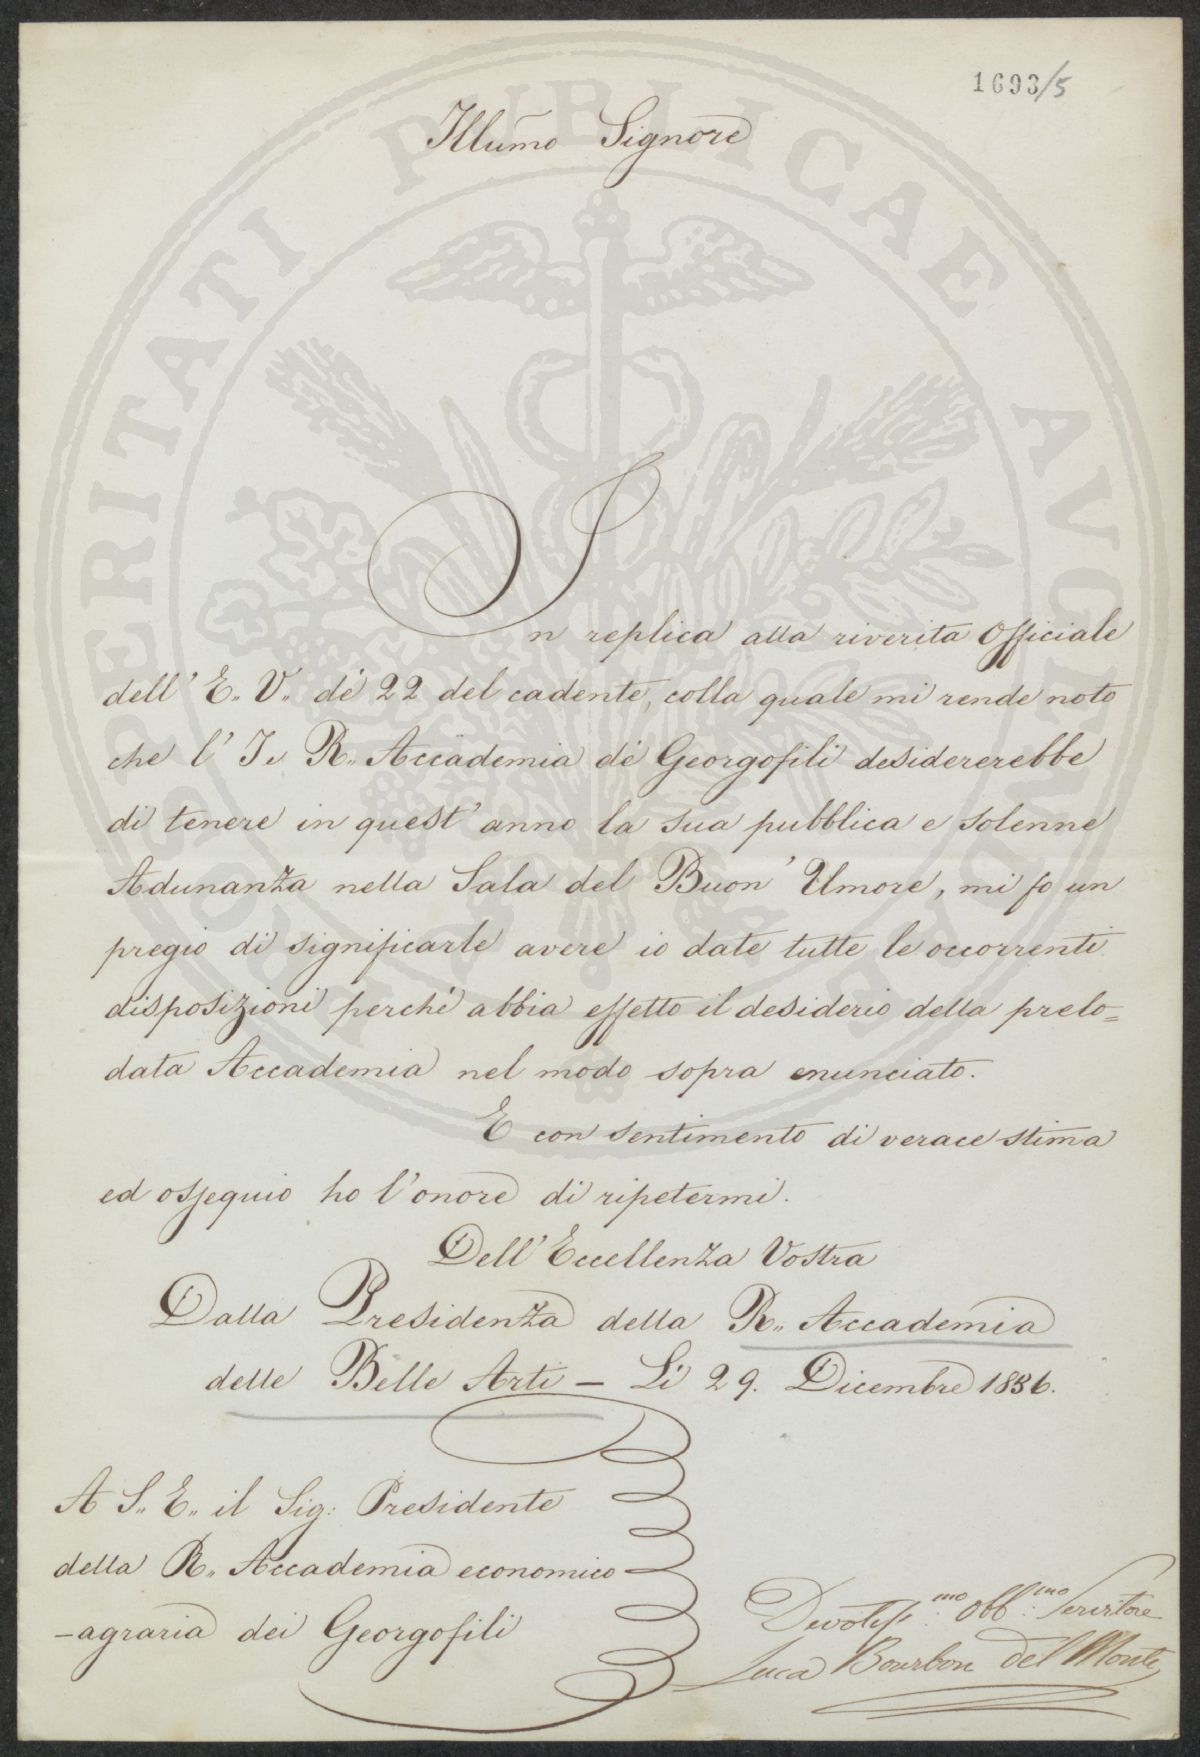 1693/5
Illumo Signore
In replica alla riverita Officiale
dell' E.. V.. de' 22 del cadente, colla quale mi rende noto
che l' I. R.. Accademia de' Georgofili desidererebbe
di tenere in quest' anno la sua pubblica e solenne
Adunanza nella Sala del Buon' Umore, mi fo un
pregio di significarle avere io date tutte le occorrenti
disposizioni perchè abbia effetto il desiderio della prelo=
data Accademia nel modo sopra enunciato.
E con sentimento di verace stima
ed ossequio ho l'onore di ripetermi.
Dell' Eccellenza Vostra
Dalla Presidenza della R.. Accademia
delle Belle Arti – Li 29. Dicembre 1856.
A S.. E.. il Sig: Presidente
della R.. Accademia economico
-agraria dei Georgofili
Devotiss:mo Obb:mo Servitore
Luca Bourbon Del Monte
PROSPERITATI PUBLICAE AVGENDAE